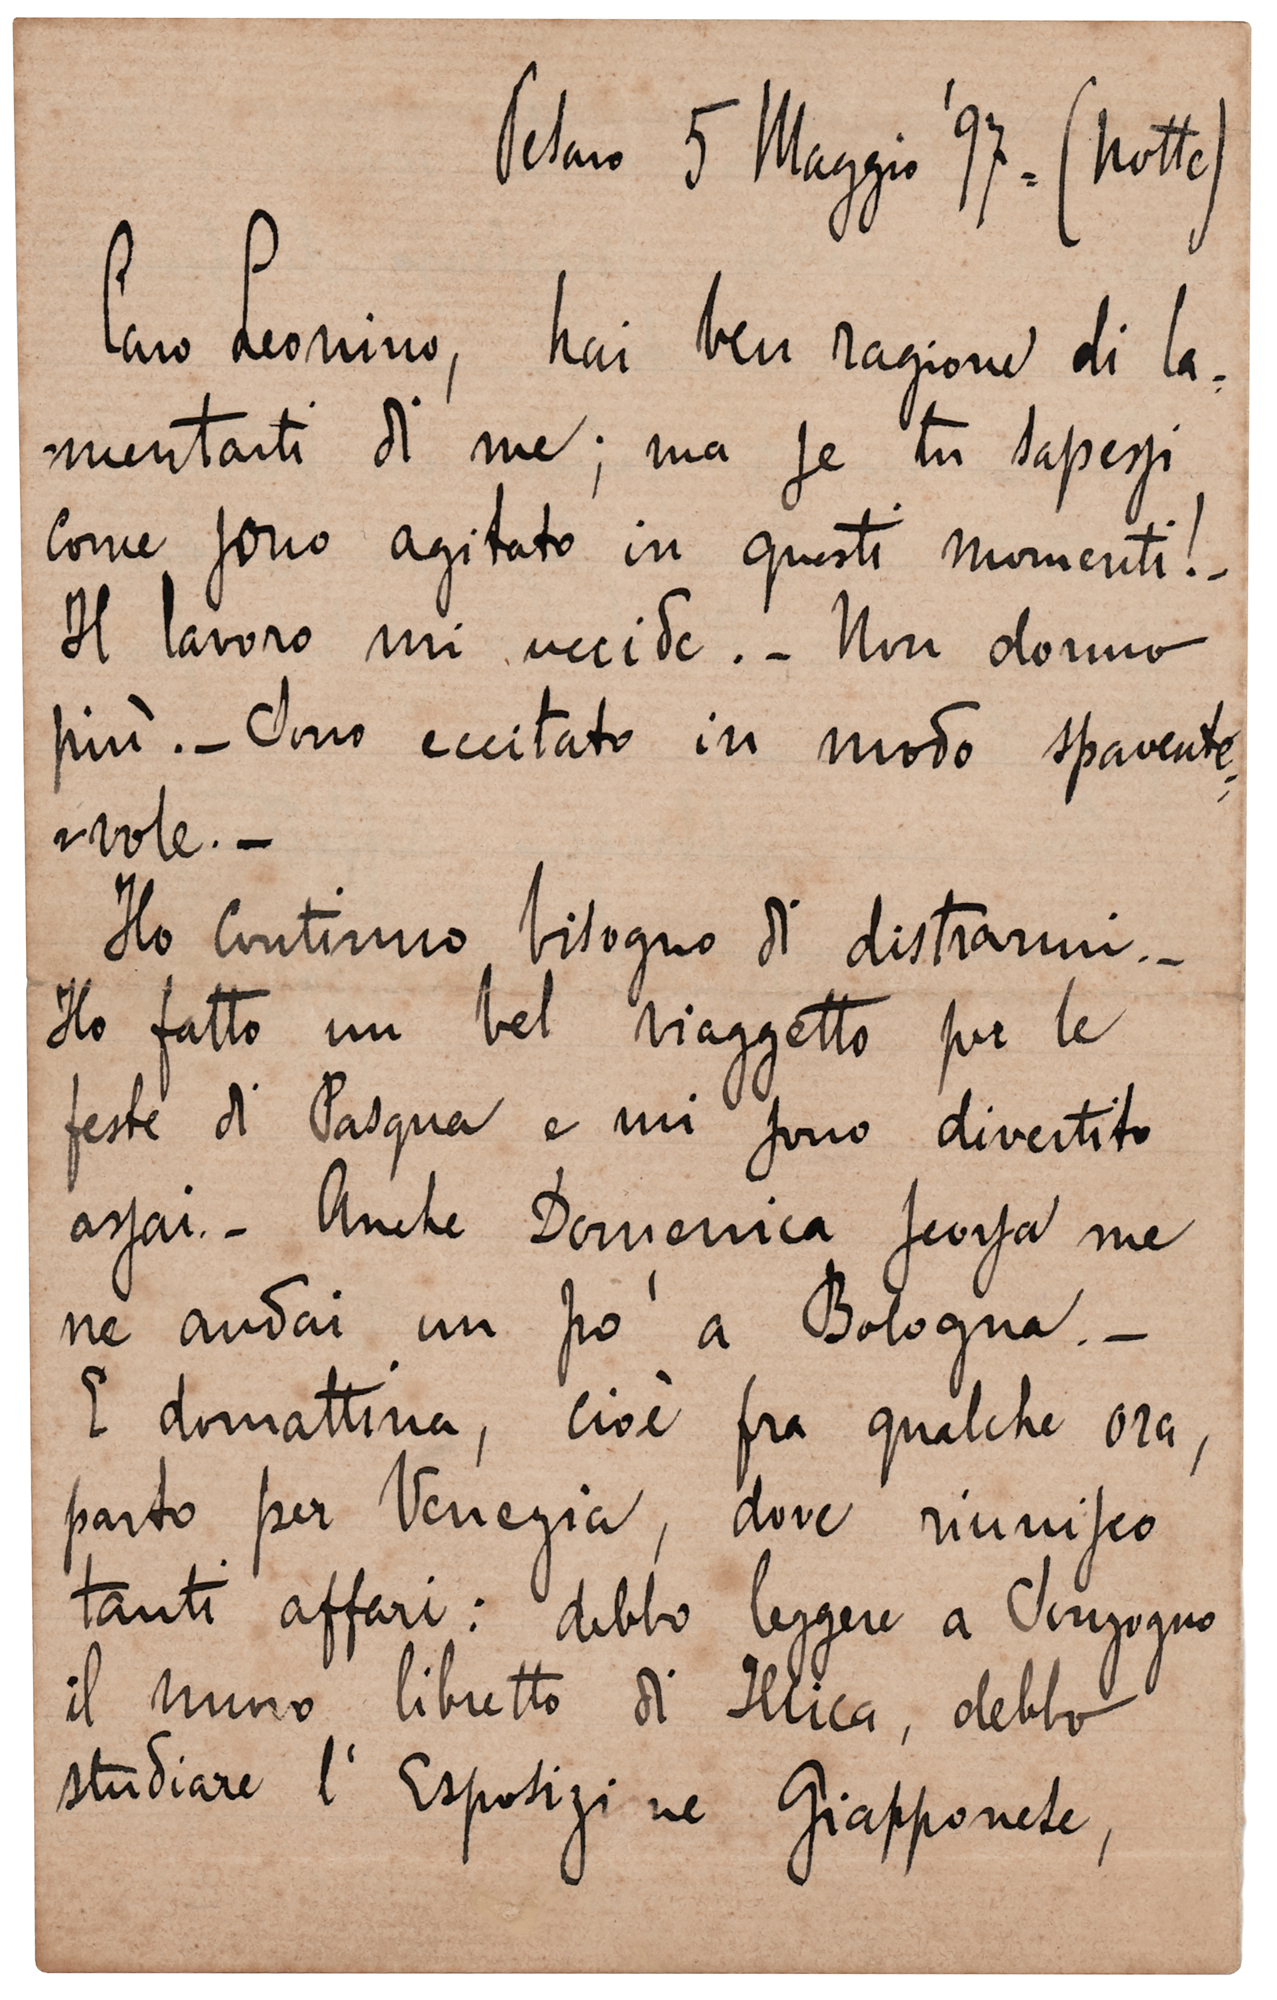 Pesaro 5 Maggio '97 = (Notte)
Caro Leonino, hai ben ragione di la=
=mentarti di me; ma se tu sapessi
come sono agitato in questi momenti! –
Il lavoro mi uccide. – Non dormo
più. – Sono eccitato in modo spavente=
=vole. –
Ho continuo bisogno di distrarmi. –
Ho fatto un bel viaggetto per le
feste di Pasqua e mi sono divertito
assai. – Anche Domenica scorsa me
ne andai un po' a Bologna. –
E domattina, cioè fra qualche ora,
parto per Venezia, dove riunisco
tanti affari: debbo leggere a Sonzogno
il nuovo libretto di Illica, debbo
studiare l'Esposizine Giapponese,